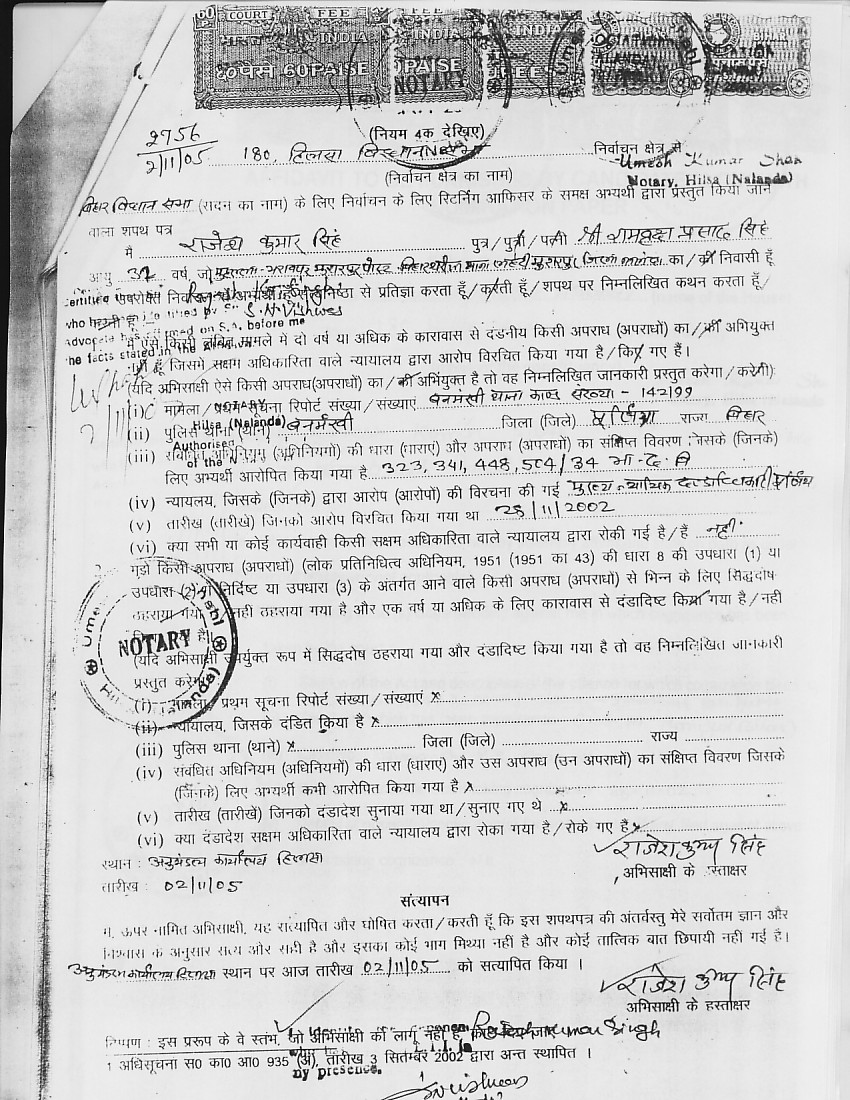 60 COURT FEE FEE
भारत INDIA INDIA INDIA
६०पैसे 60PAISE PAISE
NOTARY
(नियम 4क देखिए)
2756
2/11/05 180, हिलसा निर्वाचन क्षेत्र से
Umesh Kumar
Notary, Hilsa (Nalanda)
(निर्वाचन क्षेत्र का नाम)
बिहार विधान सभा (सदन का नाम) के लिए निर्वाचन के लिए रिटर्निंग आफिसर के समक्ष अभ्यर्थी द्वारा प्रस्तुत किया जाने
वाला शपथ पत्र
मै राजेश कुमार सिंह पुत्र/पुत्री/पत्नी श्री प्रसाद सिंह
आयु वर्ष, जो का/की निवासी हूँ
निष्ठा से प्रतिज्ञा करता हूँ/करती हूँ/शपथ पर निम्नलिखित कथन करता हूँ/
S.N. Vishwas
before me
the facts stated in the
मामले में दो वर्ष या अधिक के कारावास से दंडनीय किसी अपराध (अपराधों) का/की अभियुक्त
हूँ/जिसमे सक्षम अधिकारिता वाले न्यायालय द्वारा आरोप विरचित किया गया है/किए गए हैं।
(यदि अभिसाक्षी ऐसे किसी अपराध(अपराधों) का/की अभियुक्त है तो वह निम्नलिखित जानकारी प्रस्तुत करेगा/करेगी)
(i) मामला/प्रथम सूचना रिपोर्ट संख्या/संख्याएं बनमंखी थाना कान्ड संख्या - 142/99
NOTARY
Hilsa (Nalanda)
Authorised
(ii) पुलिस थाना (थाने) बनमंखी जिला (जिले) पूर्णिया राज्य बिहार
(iii) (अधिनियमों) की धारा (धाराएं) और अपराध (अपराधों) का संक्षिप्त विवरण जिसके (जिनके)
लिए अभ्यर्थी आरोपित किया गया है 323, 341, 448, 504/34 भा-द-वि
(iv) न्यायलय, जिसके (जिनके) द्वारा आरोप (आरोपों) की विरचना की गई मुख्य न्यायिक दण्डाधिकारी पूर्णिया
(v) तारीख (तारीखे) जिनको आरोप विरचित किया गया था /11/2002
(vi) क्या सभी या कोई कार्यवाही किसी सक्षम अधिकारिता वाले न्यायालय द्वारा रोकी गई है/हैं नहीं
किसी अपराध (अपराधों) (लोक प्रतिनिधित्व अधिनियम, 1951 (1951 का 43) की धारा 8 की उपधारा (1) या
उपधारा (2) में निर्दिष्ट या उपधारा (3) के अंतर्गत आने वाले किसी अपराध (अपराधों) से भिन्न के लिए सिद्धदोष
ठहराया गया नहीं ठहराया गया है और एक वर्ष या अधिक के लिए कारावास से दंडादिष्ट किया गया है/नही
है।
NOTARY
(यदि अभिसाक्षी उपर्युक्त रूप में सिद्धदोष ठहराया गया और दंडादिष्ट किया गया है तो वह निम्नलिखित जानकारी
प्रस्तुत करेगा
(i) मामला/प्रथम सूचना रिपोर्ट संख्या/संख्याएं x
(ii) न्यायालय, जिसके दंडित किया है x
(iii) पुलिस थाना (थाने) x जिला (जिले) राज्य
(iv) संबंधित अधिनियम (अधिनियमों) की धारा (धाराएं) और उस अपराध (उन अपराधों) का संक्षिप्त विवरण जिसके
(जिनके) लिए अभ्यर्थी कभी आरोपित किया गया है x
(v) तारीख (तारीखें) जिनको दंडादेश सुनाया गया था/सुनाए गए थे x
(vi) क्या दंडादेश सक्षम अधिकारिता वाले न्यायालय द्वारा रोका गया है/रोके गए हैं x
राजेश कुमार सिंह
स्थान : अनुमंडल कार्यालय हिलसा
अभिसाक्षी के हस्ताक्षर
तारीख : 02/11/05
सत्यापन
मै, ऊपर नामित अभिसाक्षी, यह सत्यापित और घोषित करता/करती हूँ कि इस शपथपत्र की अंतर्वस्तु मेरे सर्वोतम ज्ञान और
विश्वास के अनुसार सत्य और सही है और इसका कोई भाग मिथ्या नहीं है और कोई तात्विक बात छिपायी नहीं गई है।
अनुमंडल कार्यालय हिलसा स्थान पर आज तारीख 02/11/05 को सत्यापित किया ।
राजेश कुमार सिंह
अभिसाक्षी के हस्ताक्षर
टिप्पण : इस प्ररूप के वे स्तंभ, जो अभिसाक्षी को लागू नहीं है, Kumar Singh
1 अधिसूचना स0 का0 आ0 935 (अ), तारीख 3 सितम्बर 2002 द्वारा अन्त स्थापित ।
my presence.